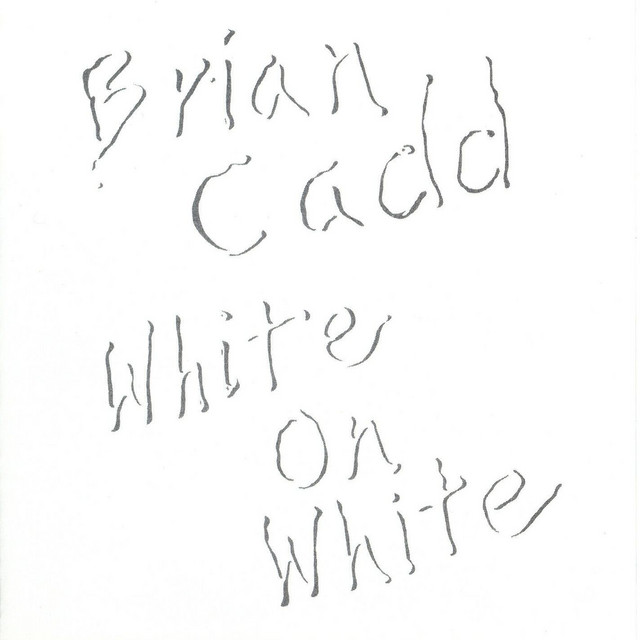 Brian
Cadd
White
On
White